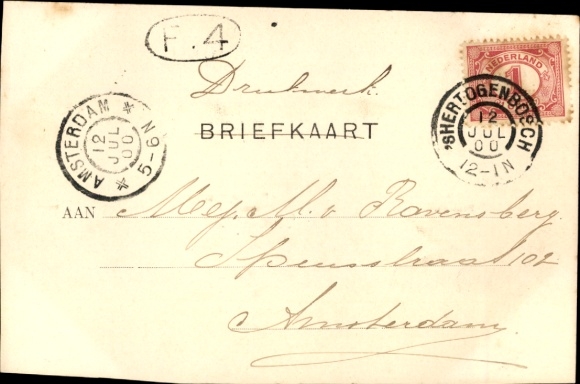 F.4
NEDERLAND
1
Drukwerk.
BRIEFKAART
AMSTERDAM
12
JUL
00
5-6N
'SHERTOGENBOSCH
12
JUL
00
12-1N
AAN Mej. M. v Ravensberg.
102
Amsterdam